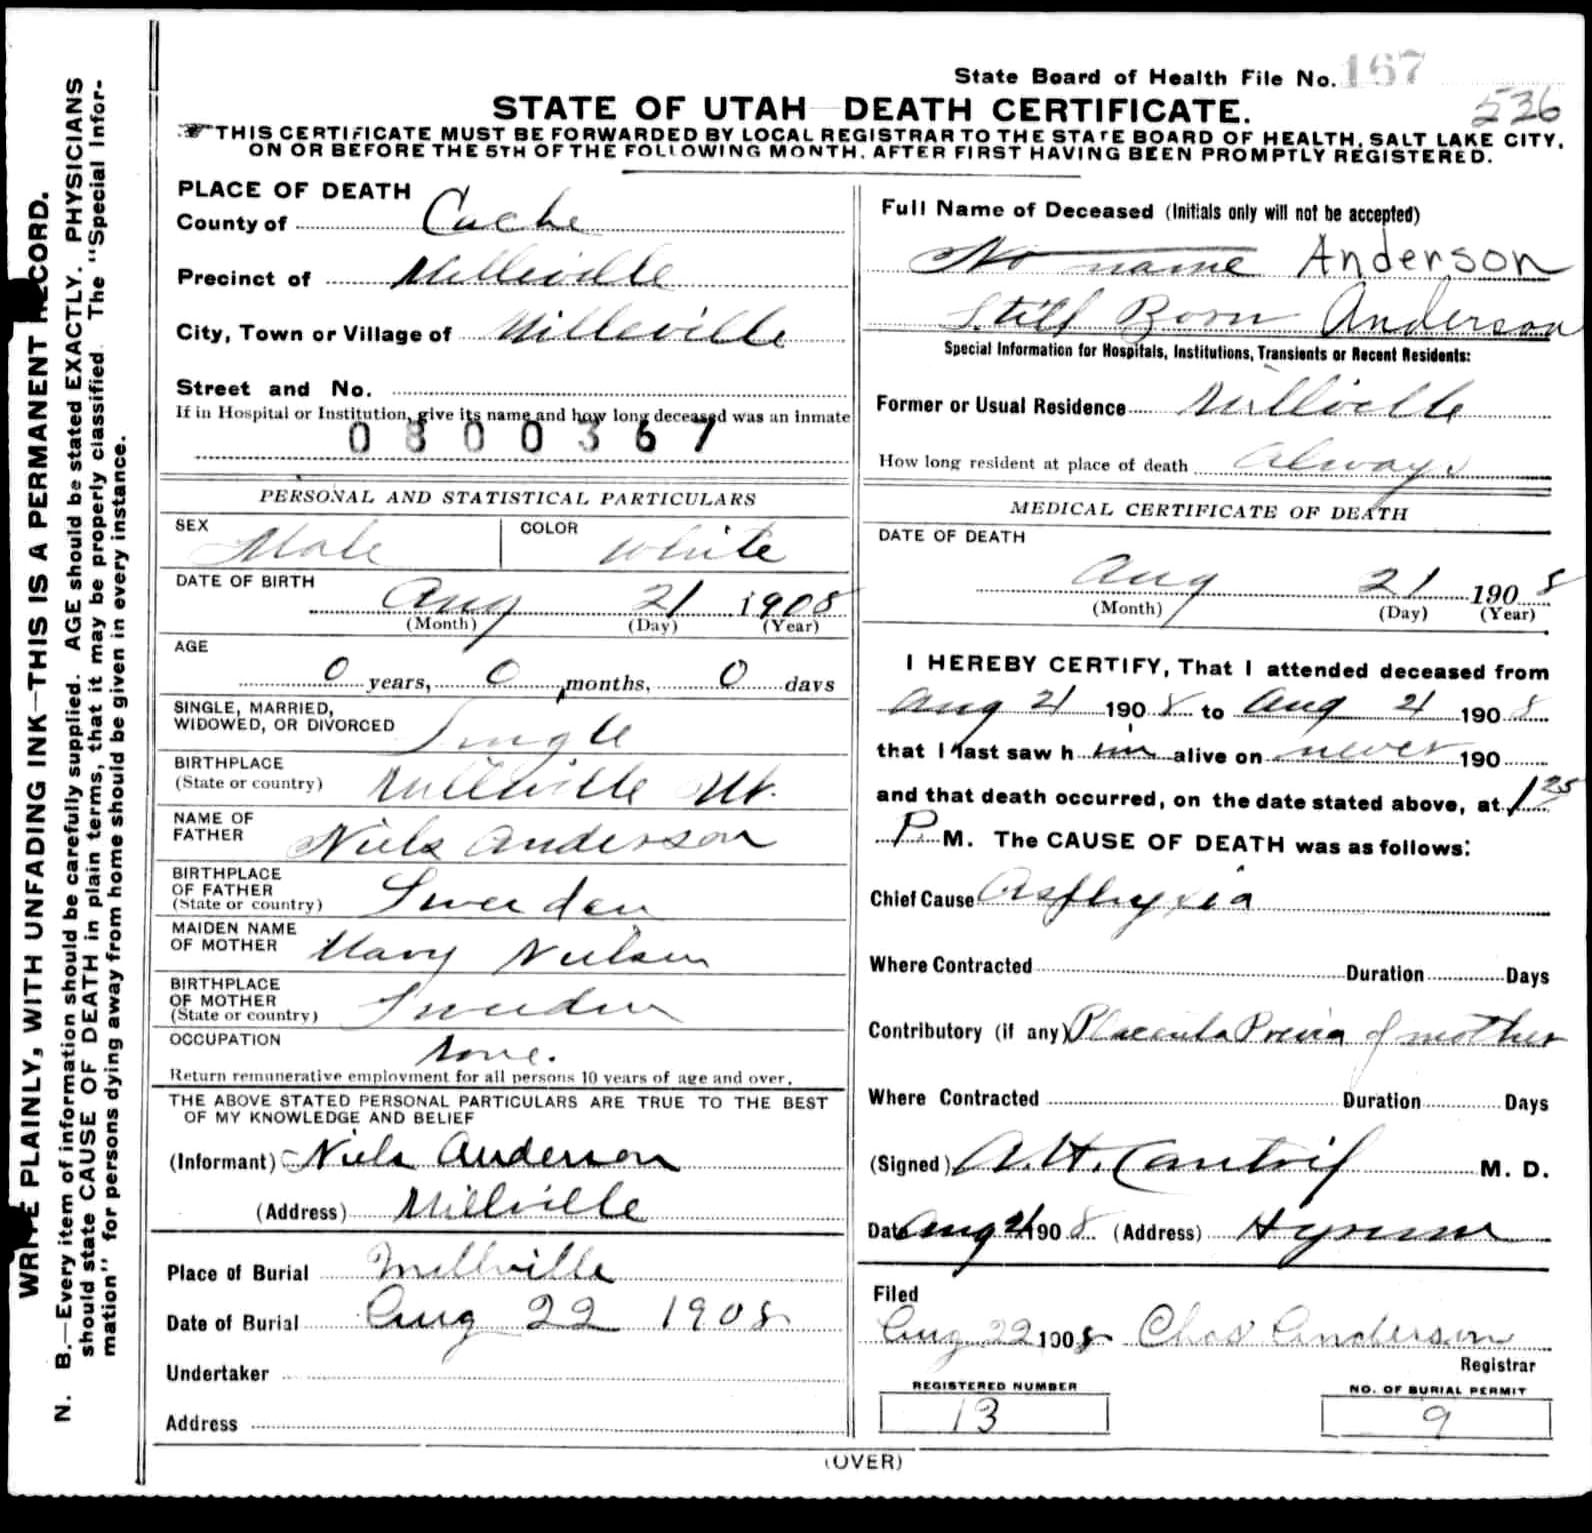 State Board of Health File No. 167
536
STATE OF UTAH—DEATH CERTIFICATE.
THIS CERTIFICATE MUST BE FORWARDED BY LOCAL REGISTRAR TO THE STATE BOARD OF HEALTH, SALT LAKE CITY,
ON OR BEFORE THE 5TH OF THE FOLLOWING MONTH, AFTER FIRST HAVING BEEN PROMPTLY REGISTERED.
WRITE PLAINLY, WITH UNFADING INK—THIS IS A PERMANENT RECORD.
N. B.—Every item of information should be carefully supplied. AGE should be stated EXACTLY. PHYSICIANS
should state CAUSE OF DEATH in plain terms, that it may be properly classified. The "Special Infor-
mation" for persons dying away from home should be given in every instance.
PLACE OF DEATH
County of Cache
Precinct of Milleville
City, Town or Village of Milleville
Street and No.
If in Hospital or Institution, give its name and how long deceased was an inmate
0800367
PERSONAL AND STATISTICAL PARTICULARS
SEX Male COLOR White
DATE OF BIRTH
Aug 21 1908
(Month) (Day) (Year)
AGE
0 years, 0 months, 0 days
SINGLE, MARRIED,
WIDOWED, OR DIVORCED Single
BIRTHPLACE
(State or country) Millville Ut.
NAME OF
FATHER Niels Anderson
BIRTHPLACE
OF FATHER
(State or country) Sweeden
MAIDEN NAME
OF MOTHER Mary Nielsen
BIRTHPLACE
OF MOTHER
(State or country) Sweeden
OCCUPATION none.
Return remunerative employment for all persons 10 years of age and over.
THE ABOVE STATED PERSONAL PARTICULARS ARE TRUE TO THE BEST
OF MY KNOWLEDGE AND BELIEF
(Informant) Niels Anderson
(Address) Millville
Place of Burial Millville
Date of Burial Aug 22 1908
Undertaker
Address
Full Name of Deceased (Initials only will not be accepted)
No name Anderson
Still Born Anderson
Special Information for Hospitals, Institutions, Transients or Recent Residents:
Former or Usual Residence Millville
How long resident at place of death always
MEDICAL CERTIFICATE OF DEATH
DATE OF DEATH
Aug 21 1908
(Month) (Day) (Year)
I HEREBY CERTIFY, That I attended deceased from
Aug 21 1908 to Aug 21 1908
that I last saw h im alive on never 190
and that death occurred, on the date stated above, at 1 25
P. M. The CAUSE OF DEATH was as follows:
Chief Cause Asphyxia
Where Contracted Duration Days
Contributory (if any) Placenta Previa of mother
Where Contracted Duration Days
(Signed) A. H. Cantril M. D.
Date Aug 21 1908 (Address) Hyrum
Filed
Aug 22 1908 Chas Anderson
Registrar
REGISTERED NUMBER
13
NO. OF BURIAL PERMIT
9
(OVER)